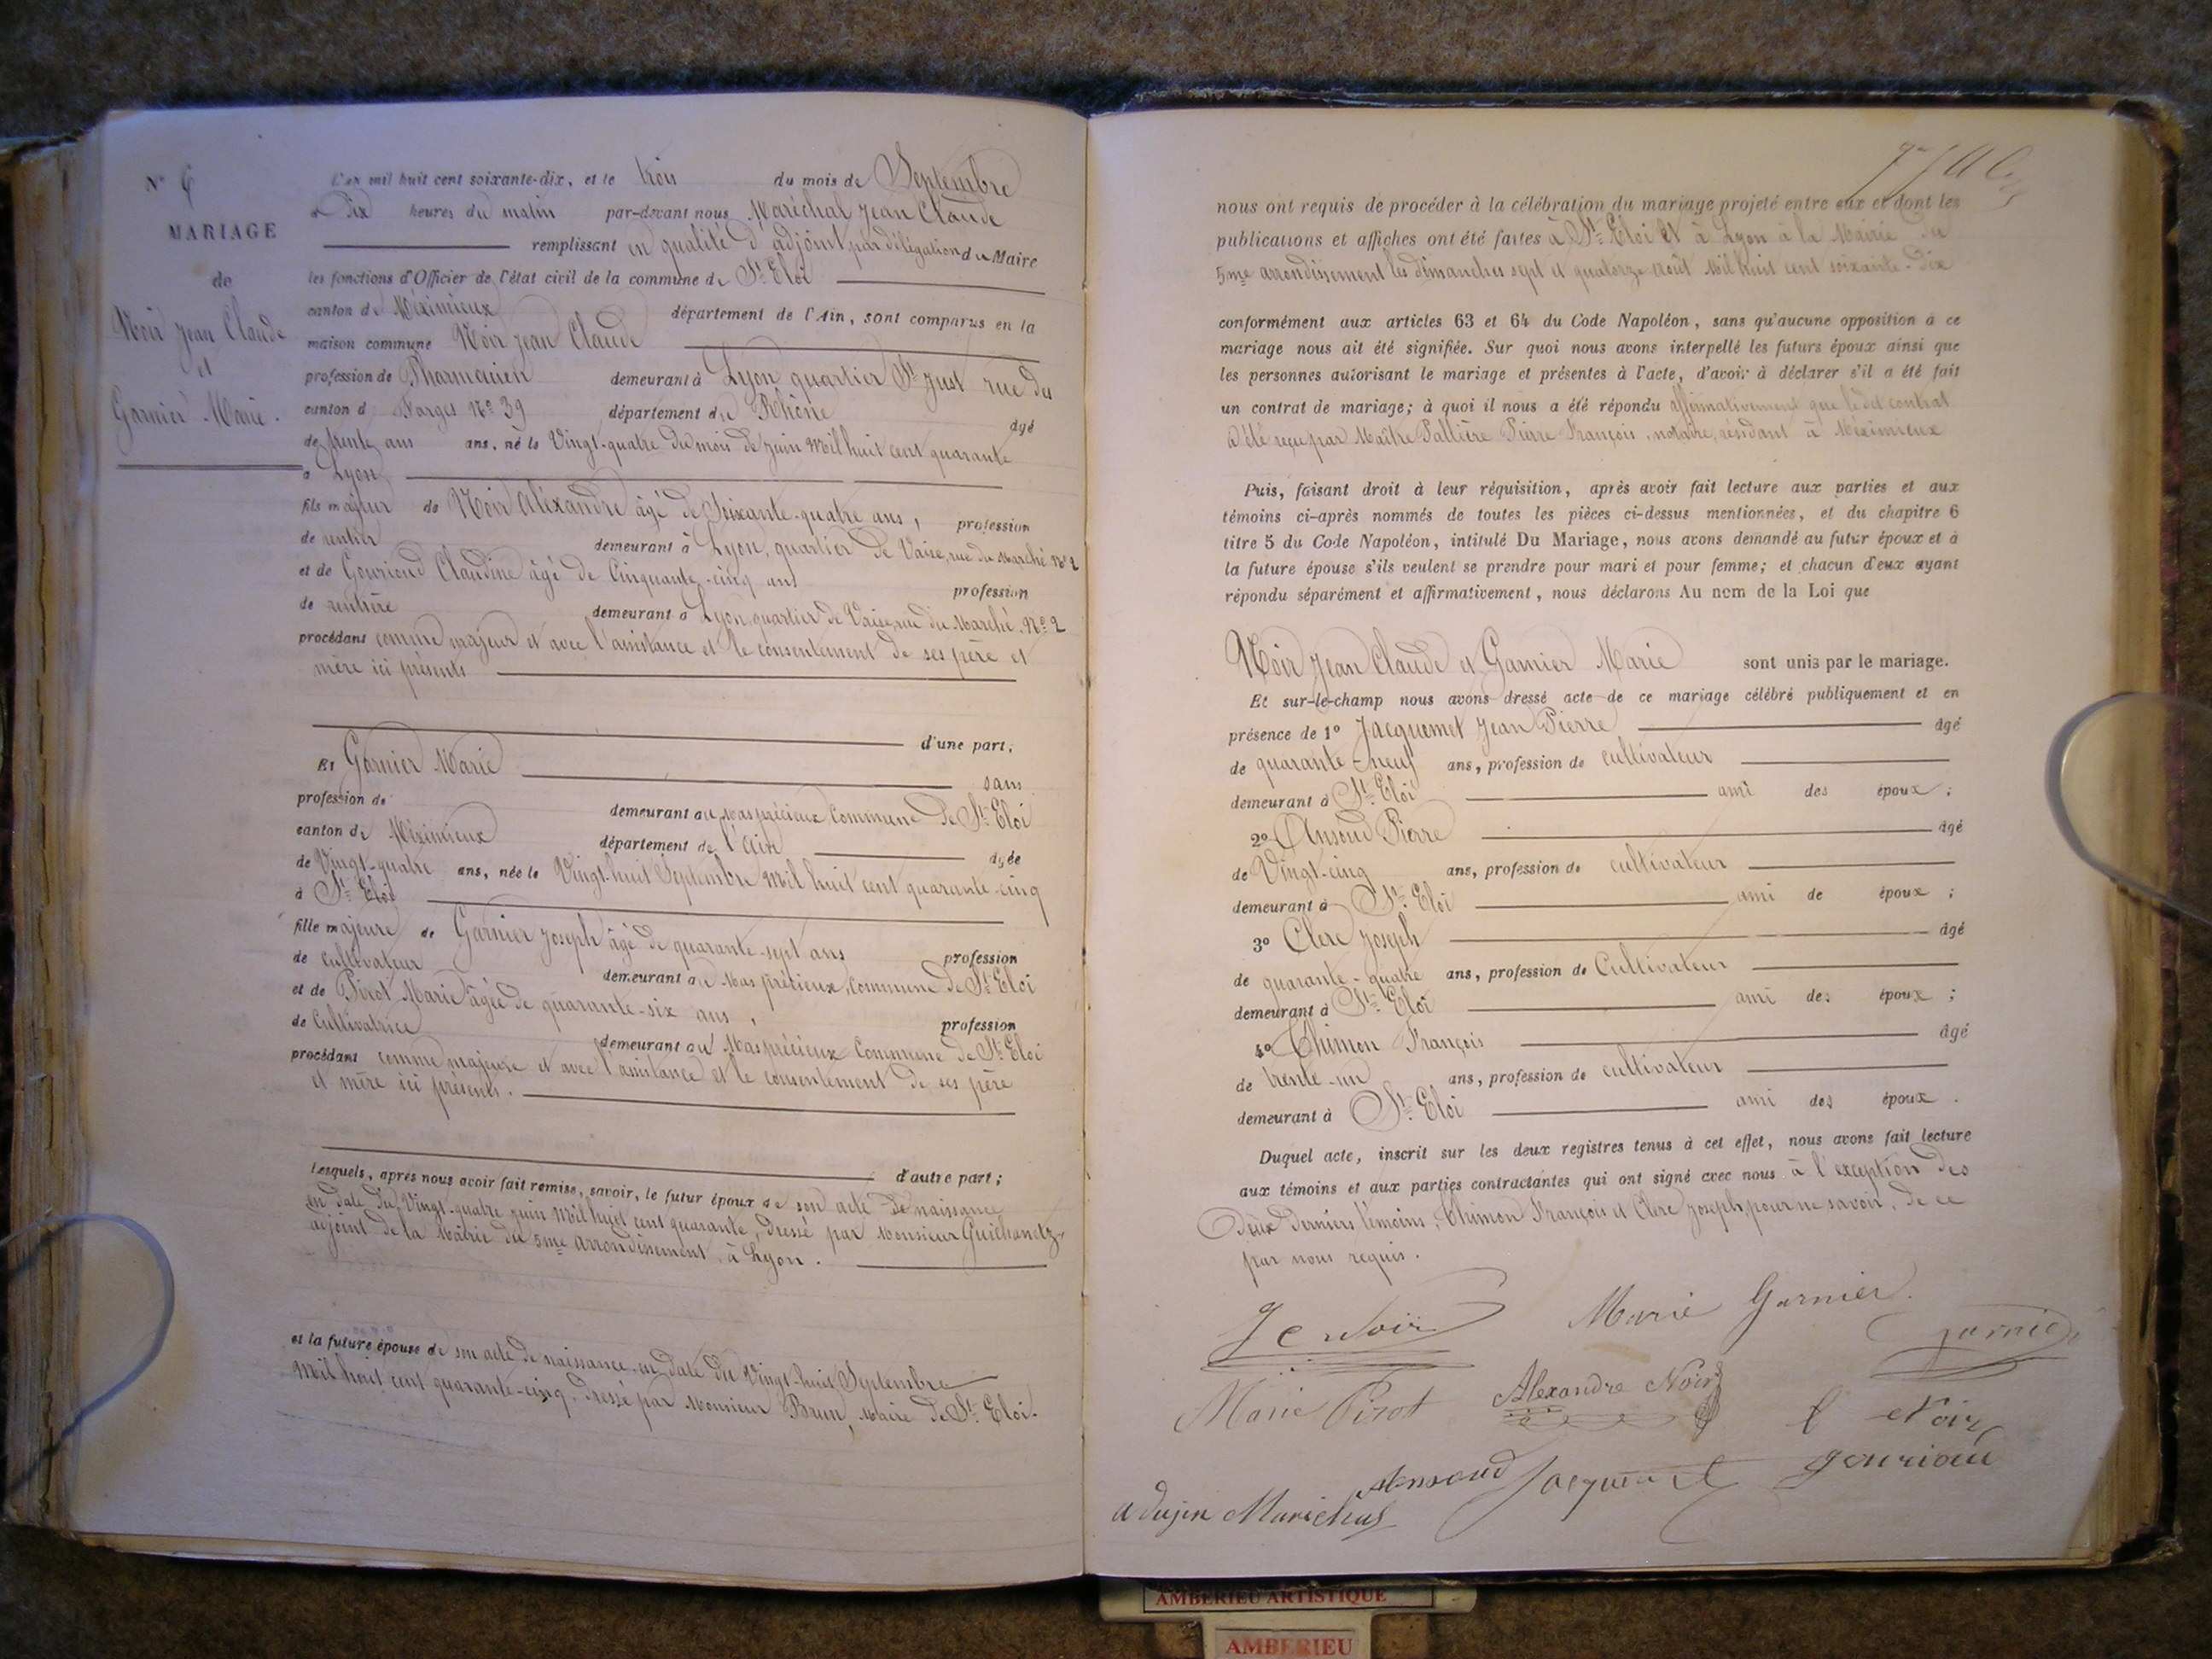 N° 6
MARIAGE
de
Noir Jean Claude
et
Garnier Marie.
L'an mil huit cent soixante-dix, et le trois du mois de Septembre
à Dix heures du matin par-devant nous Maréchal Jean Claude
remplissant en qualité d'adjoint par délégation du Maire
les fonctions d'Officier de l'état civil de la commune de St Eloi
canton de Méximieux département de l'Ain, sont comparus en la
maison commune Noir Jean Claude
profession de Pharmacien demeurant à Lyon quartier St Just rue des
canton d Farges N° 39 département du Rhône âgé
de trente ans ans, né le Vingt-quatre du mois de Juin Mil huit cent quarante
à Lyon
fils majeur de Noir Alexandre âgé de Soixante-quatre ans, profession
de rentier demeurant à Lyon, quartier de Vaise, rue du Marché N° 2
et de Gouriond Claudine âgé de Cinquante-cinq ans profession
de rentière demeurant à Lyon, quartier de Vaise, rue du Marché, N° 2
procédant comme majeur et avec l'assistance et le consentement de ses père et
mère ici présents
d'une part;
Et Garnier Marie sans
profession de demeurant au Mas précieux Commune de St Eloi
canton de Méximieux département de l'Ain âgée
de Vingt-quatre ans, née le Vingt-huit Septembre Mil huit cent quarante-cinq
à St Eloi
fille majeure de Garnier Joseph âgé de quarante-sept ans profession
de Cultivateur demeurant au Mas précieux, Commune de St Eloi
et de Pirot Marie âgée de quarante-six ans, profession
de Cultivatrice demeurant au Mas précieux Commune de St Eloi
procédant comme majeure et avec l'assistance et le consentement de ses père
et mère ici présents.
d'autre part;
Lesquels, après nous avoir fait remise, savoir, le futur époux de son acte de naissance
en date du Vingt-quatre Juin Mil huit cent quarante, dressé par Monsieur
adjoint de la Mairie du 5me arrondissement, à Lyon.
et la future épouse de son acte de naissance en date du Vingt-huit Septembre
Mil huit cent quarante-cinq, dressé par Monsieur Brun, Maire de St Eloi.
nous ont requis de procéder à la célébration du mariage projeté entre eux et dont les
publications et affiches ont été faites à St Eloi et à Lyon à la Mairie du
5me arrondissement les dimanches sept et quatorze août Mil huit cent soixante-dix
conformément aux articles 63 et 64 du Code Napoléon, sans qu'aucune opposition à ce
mariage nous ait été signifiée. Sur quoi nous avons interpellé les futurs époux ainsi que
les personnes autorisant le mariage et présentes à l'acte, d'avoir à déclarer s'il a été fait
un contrat de mariage; à quoi il nous a été répondu affirmativement que le dit contrat
a été reçu par Maître Pallière Pierre François, notaire, résidant à Méximieux
Puis, faisant droit à leur réquisition, après avoir fait lecture aux parties et aux
témoins ci-après nommés de toutes les pièces ci-dessus mentionnées, et du chapitre 6
titre 5 du Code Napoléon, intitulé Du Mariage, nous avons demandé au futur époux et à
la future épouse s'ils veulent se prendre pour mari et pour femme; et chacun d'eux ayant
répondu séparément et affirmativement, nous déclarons Au nom de la Loi que
Noir Jean Claude et Garnier Marie sont unis par le mariage.
Et sur-le-champ nous avons dressé acte de ce mariage célébré publiquement et en
présence de 1° Jacquemet Jean Pierre âgé
de quarante-neuf ans, profession de cultivateur
demeurant à St Eloi ami des époux;
2° Ansoud Pierre âgé
de Vingt-cinq ans, profession de cultivateur
demeurant à St Eloi ami de époux;
3° Clerc Joseph âgé
de quarante-quatre ans, profession de Cultivateur
demeurant à St Eloi ami des époux;
4° Chimon François âgé
de trente-un ans, profession de cultivateur
demeurant à St Eloi ami des époux.
Duquel acte, inscrit sur les deux registres tenus à cet effet, nous avons fait lecture
aux témoins et aux parties contractantes qui ont signé avec nous à l'exception des
deux derniers témoins, Chimon François et Clerc Joseph, pour ne savoir, de ce
par nous requis.
J C Noir Marie Garnier. Garnier
Marie Pirot Alexandre Noir f Noir
Ansoud Jacquemet gourioud
adujin Marichal
AMBERIEU ARTISTIQUE
AMBERIEU